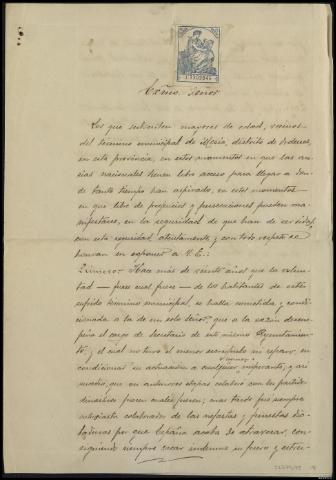 Exmo. Señor
Los que suscriben mayores de edad, vecinos
del termino municipal de Mesia, distrito de Ordenes,
en esta provincia, en estos momentos en que las an-
sias nacionales tienen libre acceso para llegar a don-
de tanto tiempo han aspirado, en estos momentos
en que libre de prejuicios y persecuciones pueden ma-
nifestarse, en la seguridad de que han de ser oidas,
con esta seguridad, atentamente y con todo respeto se
honran en exponer a V. E.:
Primero: Hace mas de veinte años que la volun-
tad — fuere cual fuere — de los habitantes de este
sufrido termino municipal, se halla sometida y condi-
cionada a la de un solo señor, que a la sazón desem-
peña el cargo de Secretario de este mismo Ayuntamien-
to, y el cual no tuvo el menor escrupulo ni reparo, en
condicionar su actuación a cualquier imperante, y asi
mucho, que en anteriores etapas colaboro con los partidos
fueren cuales fueren; mas tarde fué siempre
entusiasta colaborador de las nefastas y funestas dic-
taduras por que España acaba de atravesar, con-
siguiendo siempre sacar indemne su fuero y